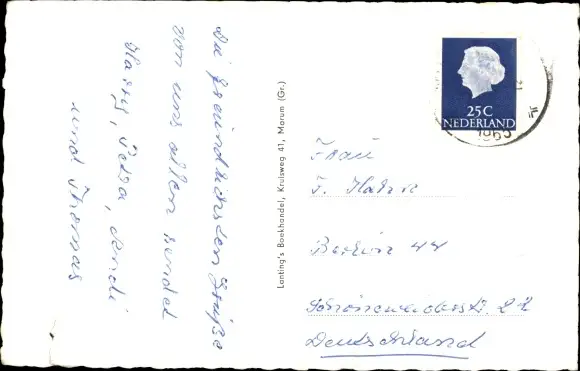 Die freundlichsten Grüße
von uns allen sendet
Harry, Petra, Andi
und Thomas
Lanting's Boekhandel, Kruisweg 41, Marum (Gr.)
25C
NEDERLAND
Frau
F. Hahn
Berlin 44
Schönweiderstr. 22
Deutschland